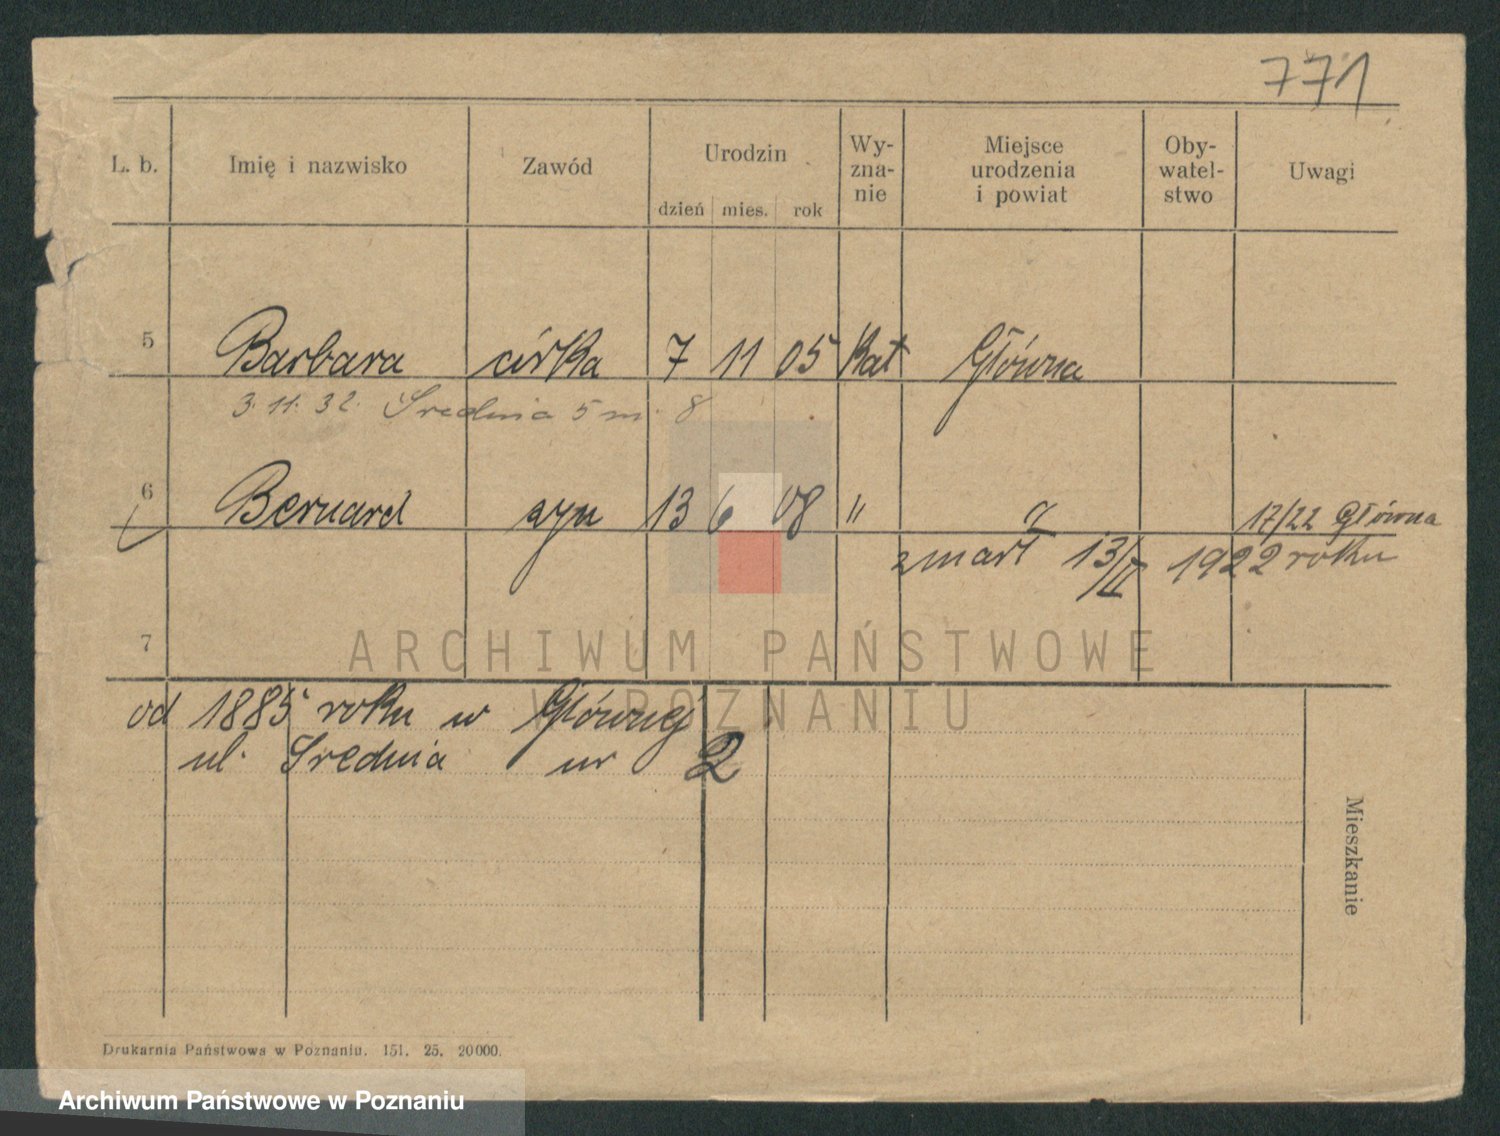 771
L. b. Imię i nazwisko Zawód Urodzin dzień mies. rok Wy-zna-nie Miejsce urodzenia i powiat Oby-watel-stwo Uwagi
5 Barbara córka 7 11 05 Kat Główna
3. 11. 32. Srednia 5 m. 8
6 Bernard syn 13 6 08 " 17/22 Główna
zmarł 13/II 1922 roku
7
ARCHIWUM PAŃSTWOWE
W POZNANIU
od 1885 roku w Głównej
ul. Srednia nr 2
Mieszkanie
Drukarnia Państwowa w Poznaniu. 151. 25. 20000.
Archiwum Państwowe w Poznaniu